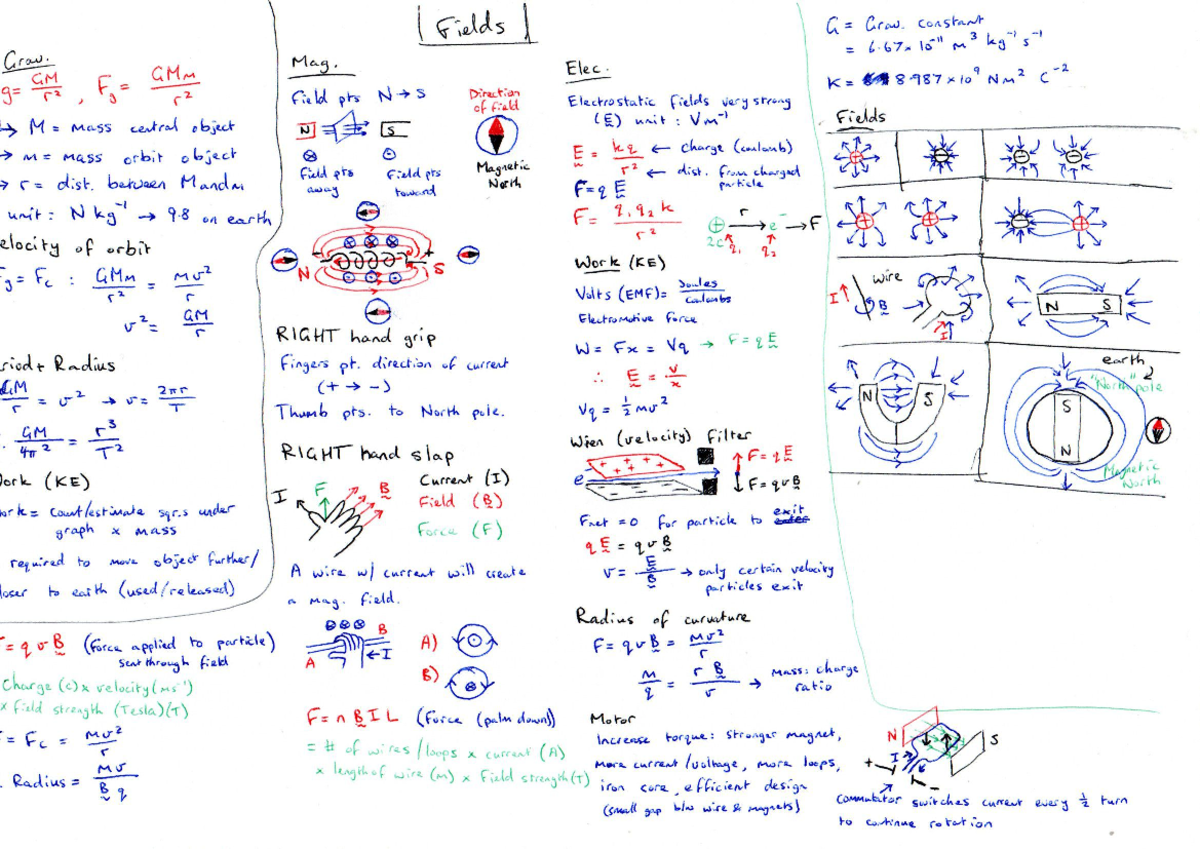 Fields
Grav.
g= GM/r² , Fg = GMm/r²
→ M = mass central object
→ m = mass orbit object
→ r = dist. between M and m
unit: N kg⁻¹ → 9.8 on earth
elocity of orbit
Fg = Fc : GMm/r² = mv²/r
v² = GM/r
riod + Radius
GM/r = v² → v = 2πr/T
GM/4π² = r³/T²
ork (KE)
ork = count/estimate sqr.s under
graph × mass
required to move object further/
loser to earth (used/released)
= qvB (Force applied to particle)
sent through field
Charge (C) × velocity (ms⁻¹)
× field strength (Tesla)(T)
= Fc = mv²/r
. Radius = mv/Bq
Mag.
Field pts N → S
N S
⊗ ⊙
Field pts away
Field pts toward
Direction of field
Magnetic North
- +
N S
RIGHT hand grip
Fingers pt. direction of current
(+ → -)
Thumb pts. to North pole.
RIGHT hand slap
I F B
Current (I)
Field (B)
Force (F)
A wire w/ current will create
a mag. field.
⊗⊗⊗
A B ←I
A) ⊙
B) ⊗
F = n B I L (Force (palm down))
= # of wires/loops × current (A)
× length of wire (m) × Field strength (T)
Elec.
Electrostatic fields very strong
(E) unit : Vm⁻¹
E = kq/r² ← charge (coulomb)
← dist. from charged particle
F = q E
F = q₁q₂k/r²
⊕ r → e⁻ → F
2C q₁ q₂
Work (KE)
Volts (EMF) = Joules/coulombs
Electromotive force
W = Fx = Vq → F = qE
∴ E = V/x
Vq = ½mv²
Wien (velocity) Filter
+ + + + + + +
e⁻
F = qE
F = qvB
Fnet = 0 for particle to exit
qE = qvB
v = E/B → only certain velocity
particles exit
Radius of curvature
F = qvB = mv²/r
m/q = rB/v → Mass: charge
ratio
Motor
Increase torque: stronger magnet,
more current/voltage, more loops,
iron core, efficient design
(small gap b/w wire & magnets)
G = Grav. constant
= 6.67×10⁻¹¹ m³ kg⁻¹ s⁻¹
K = 8.987×10⁹ Nm² C⁻²
Fields
+ - - -
+ + - +
I wire B I
N S
N S
earth
"North" pole
S
N
Magnetic North
N S
I
+ -
Commutator switches current every ½ turn
to continue rotation